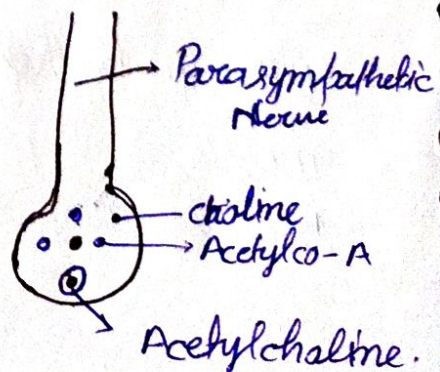 Parasympathetic
Nerve
choline
Acetylco-A
Acetylcholine.